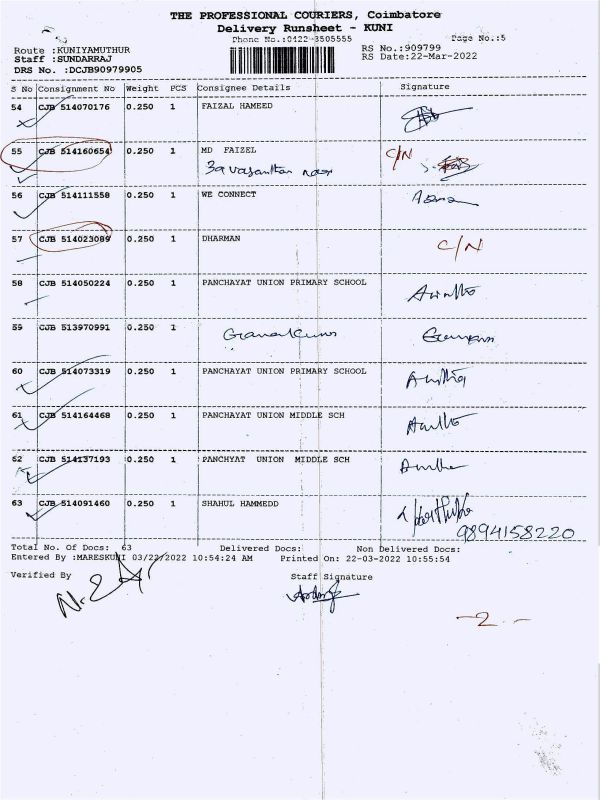 THE PROFESSIONAL COURIERS, Coimbatore
Delivery Runsheet - KUNI
Phone No.:0122-3505555 Page No.:5
Route :KUNIYAMUTHUR RS No.:909799
Staff :SUNDARRAJ RS Date:22-Mar-2022
DRS No. :DCJB90979905
S No Consignment No Weight PCS Consignee Details Signature
54 CJB 514070176 0.250 1 FAIZAL HAMEED
55 CJB 514160654 0.250 1 MD FAIZEL C/N
56 CJB 514111558 0.250 1 WE CONNECT
57 CJB 514023089 0.250 1 DHARMAN C/N
58 CJB 514050224 0.250 1 PANCHAYAT UNION PRIMARY SCHOOL
59 CJB 513970991 0.250 1
60 CJB 514073319 0.250 1 PANCHAYAT UNION PRIMARY SCHOOL
61 CJB 514164468 0.250 1 PANCHAYAT UNION MIDDLE SCH
62 CJB 514137193 0.250 1 PANCHYAT UNION MIDDLE SCH
63 CJB 514091460 0.250 1 SHAHUL HAMMEDD
9894158220
Total No. Of Docs: 63 Delivered Docs: Non Delivered Docs:
Entered By :MARESKUNI 03/22/2022 10:54:24 AM Printed On: 22-03-2022 10:55:54
Verified By Staff Signature
-2.-